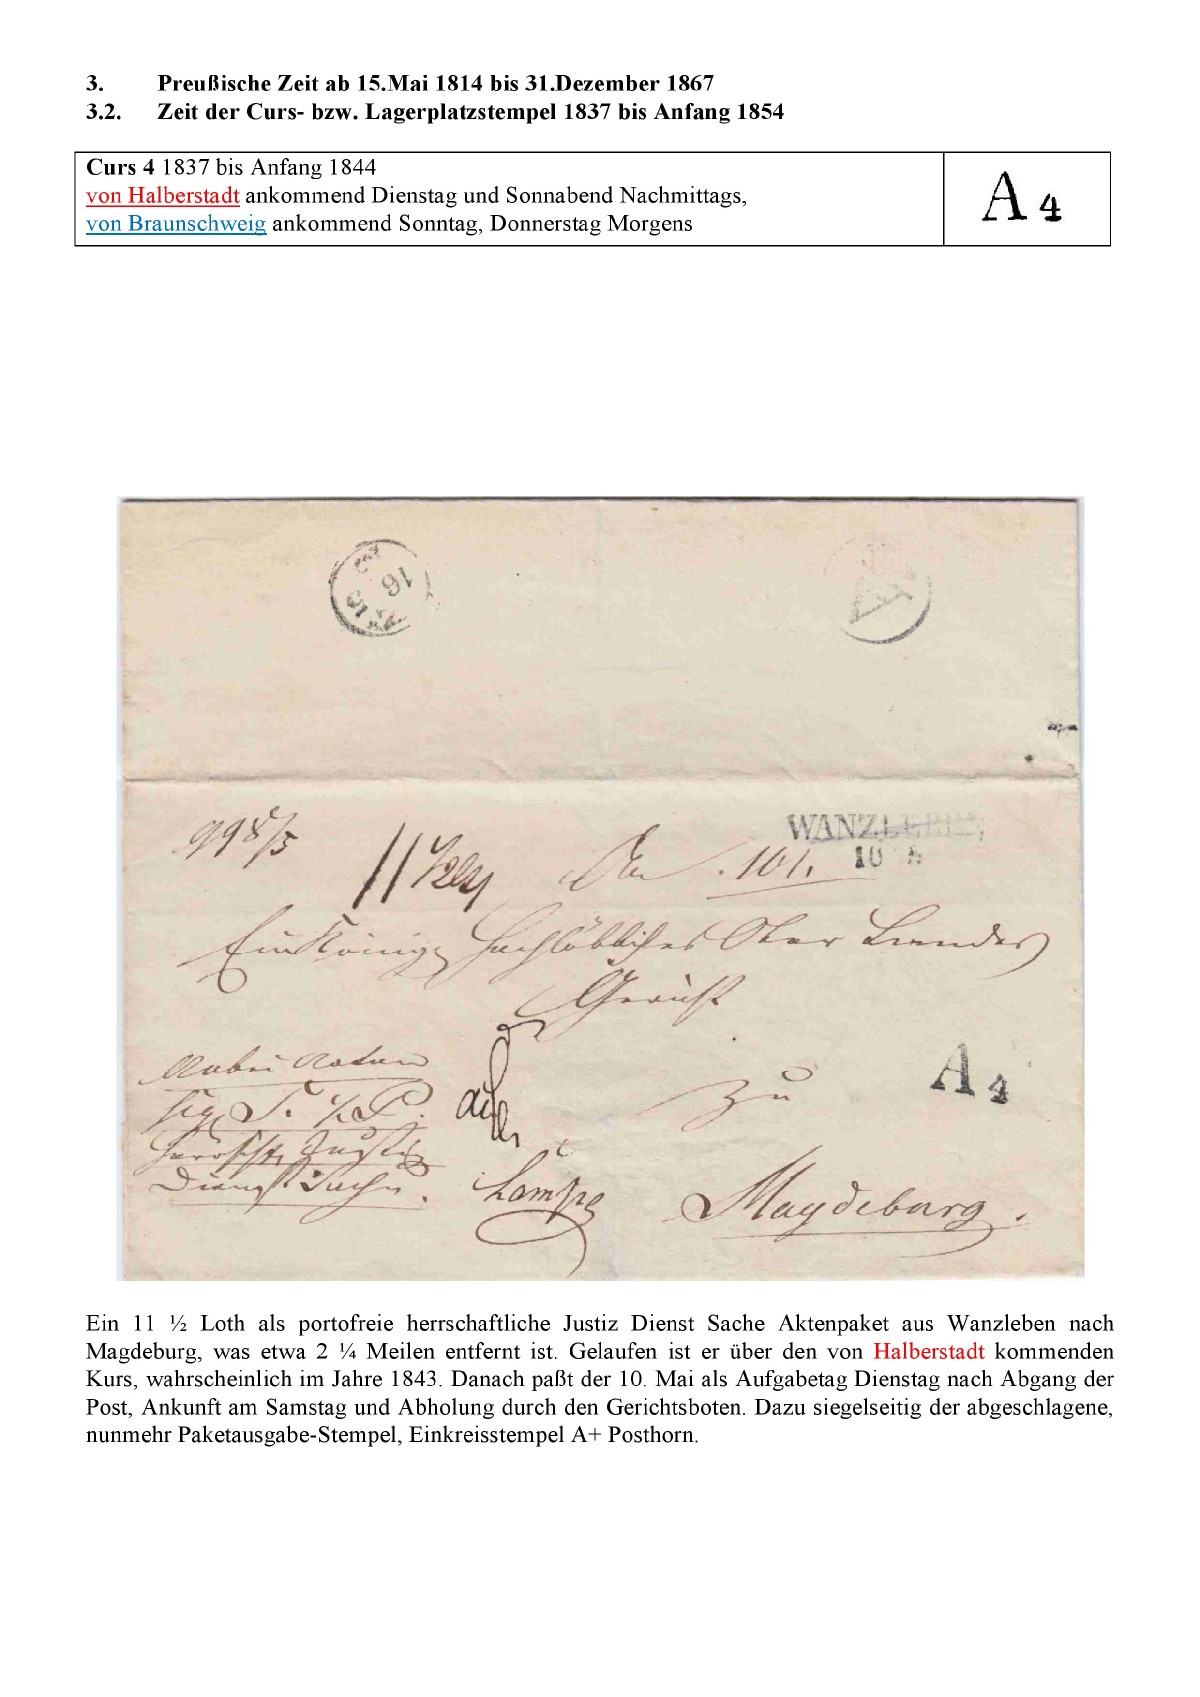 3. Preußische Zeit ab 15.Mai 1814 bis 31.Dezember 1867
3.2. Zeit der Curs- bzw. Lagerplatzstempel 1837 bis Anfang 1854
Curs 4 1837 bis Anfang 1844
von Halberstadt ankommend Dienstag und Sonnabend Nachmittags,
von Braunschweig ankommend Sonntag, Donnerstag Morgens
A 4
16
A
998/5
11 1/2
WANZLEBEN
10 5
101.
Ein Königl Hochlöbliches Ober Landes
Gericht
A 4
zu
Dienst Sache.
Lampe
Magdeburg.
Ein 11 ½ Loth als portofreie herrschaftliche Justiz Dienst Sache Aktenpaket aus Wanzleben nach
Magdeburg, was etwa 2 ¼ Meilen entfernt ist. Gelaufen ist er über den von Halberstadt kommenden
Kurs, wahrscheinlich im Jahre 1843. Danach paßt der 10. Mai als Aufgabetag Dienstag nach Abgang der
Post, Ankunft am Samstag und Abholung durch den Gerichtsboten. Dazu siegelseitig der abgeschlagene,
nunmehr Paketausgabe-Stempel, Einkreisstempel A+ Posthorn.